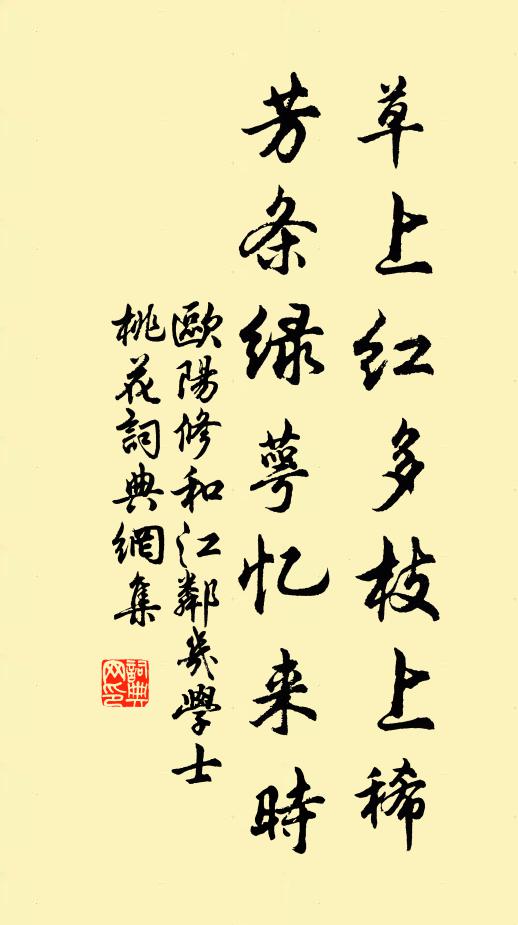 草上红多枝上稀
芳条绿萼忆来時
歐陽修和江鄰幾學士
桃花詞典網集
詞典网印